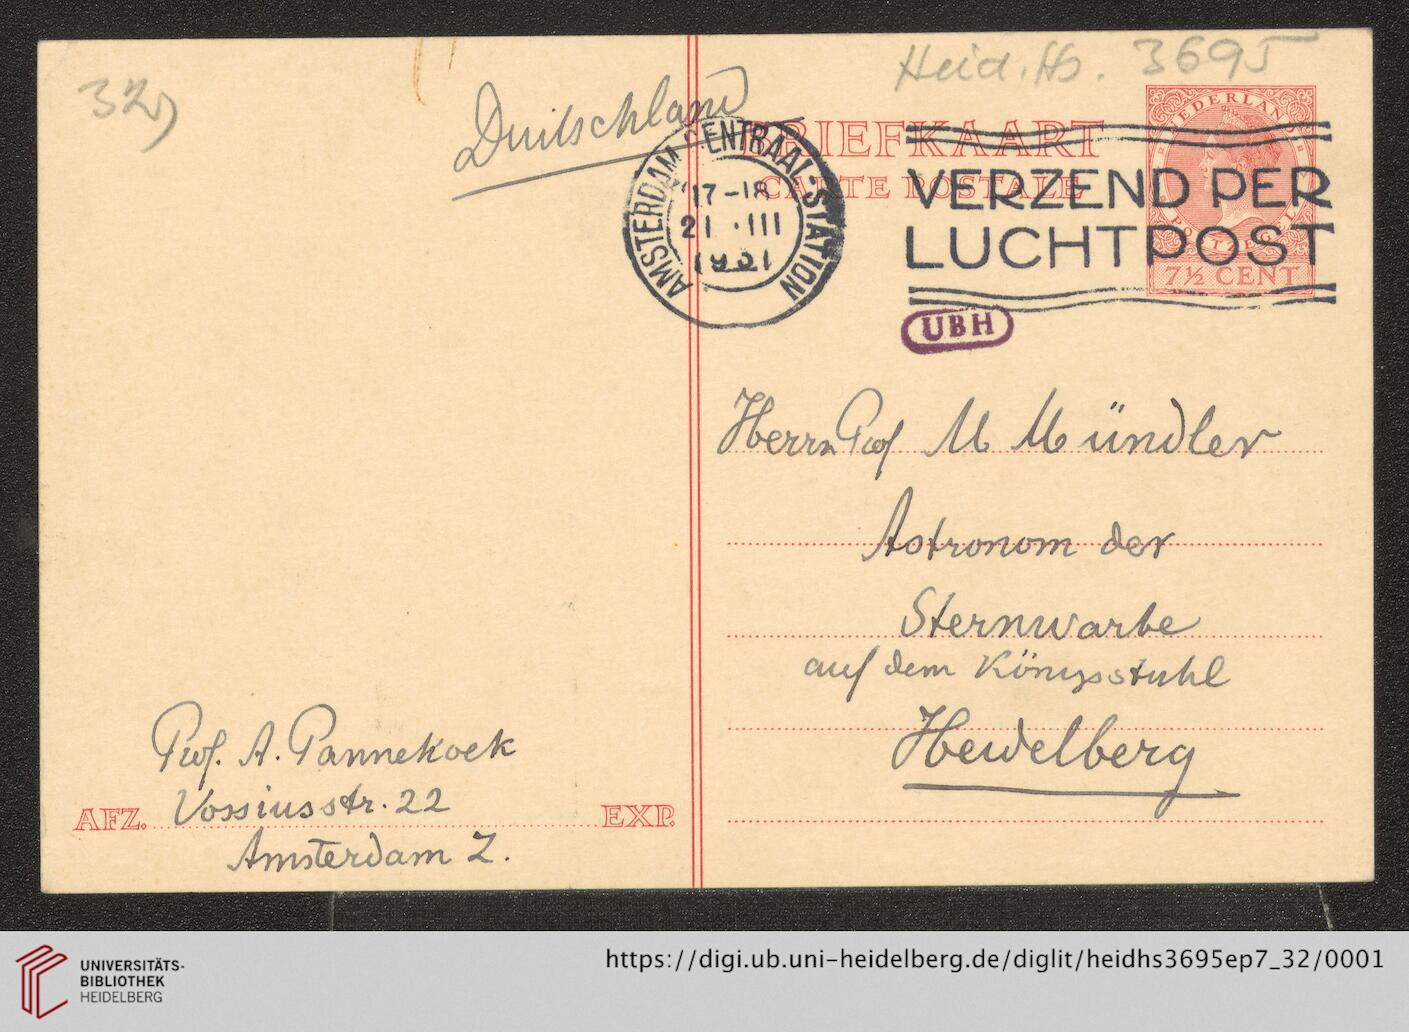 32)
Duitschland
Heid. Hs. 3695
BRIEFKAART
CARTE POSTALE
NEDERLAND
POSTZEGEL
7½ CENT
AMSTERDAM CENTRAAL STATION
17-18
21 III
1931
VERZEND PER
LUCHTPOST
UBH
Herrn Prof M Mündler
Astronom der
Sternwarte
auf dem Königsstuhl
Heidelberg
Prof. A. Pannekoek
AFZ. Vossiusstr. 22 EXP.
Amsterdam Z.
UNIVERSITÄTS-
BIBLIOTHEK
HEIDELBERG
https://digi.ub.uni-heidelberg.de/diglit/heidhs3695ep7_32/0001